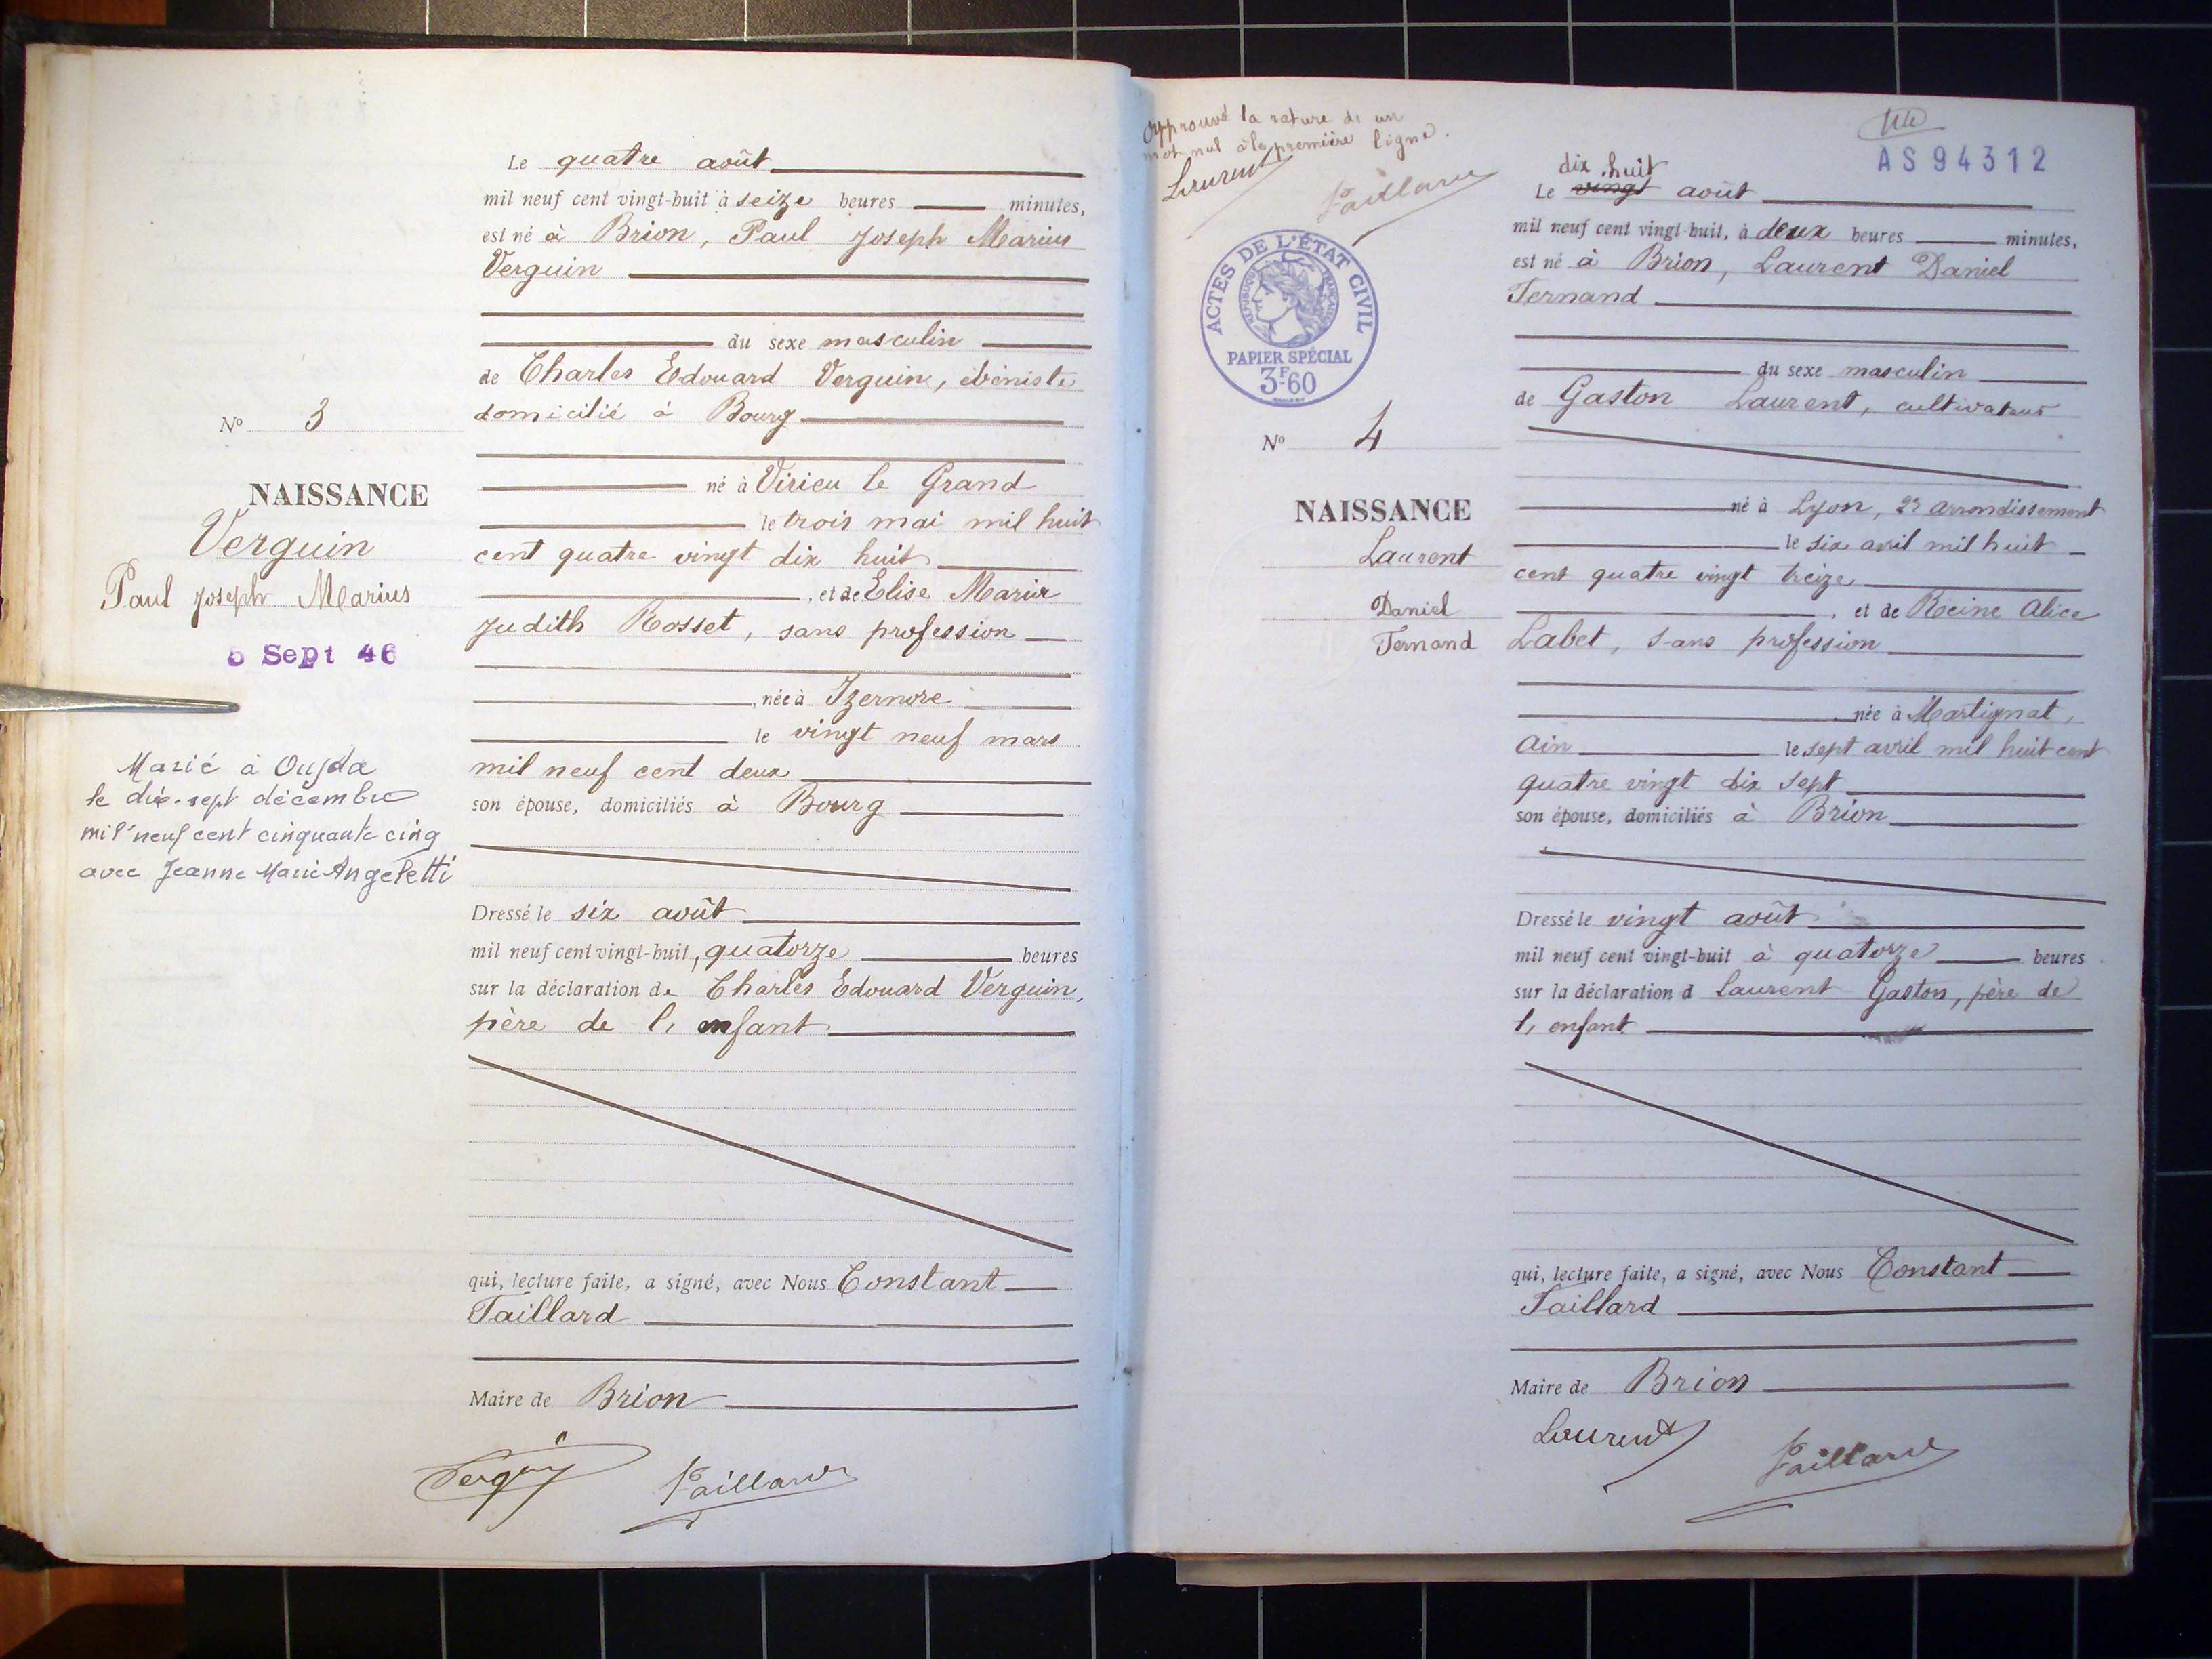 Le quatre août
mil neuf cent vingt-huit à seize heures minutes,
est né à Brion, Paul Joseph Marius
Verguin
du sexe masculin
de Charles Edouard Verguin, ébéniste
domicilié à Bourg
né à Virieu le Grand
le trois mai mil huit
cent quatre vingt dix huit
, et de Elise Marie
Judith Rosset, sans profession
, née à Izernore
le vingt neuf mars
mil neuf cent deux
son épouse, domiciliés à Bourg
Dressé le six août
mil neuf cent vingt-huit, quatorze heures
sur la déclaration de Charles Edouard Verguin,
père de l, enfant
qui, lecture faite, a signé, avec Nous Constant
Taillard
Maire de Brion
Taillard
N° 3
NAISSANCE
Verguin
Paul Joseph Marius
5 Sept 46
Marié à Oujda
le dix-sept décembre
mil neuf cent cinquante cinq
avec Jeanne Marie Angeletti
Approuvé la rature de un
mot nul à la première ligne.
Laurent Taillard
AS94312
ACTES DE L'ÉTAT CIVIL
RÉPUBLIQUE FRANÇAISE
PAPIER SPÉCIAL
3F.60
N° 4
NAISSANCE
Laurent
Daniel
Fernand
dix huit
Le vingt août
mil neuf cent vingt-huit, à deux heures minutes,
est né à Brion, Laurent Daniel
Fernand
du sexe masculin
de Gaston Laurent, cultivateur
né à Lyon, 2e arrondissement
le six avril mil huit
cent quatre vingt treize
, et de Reine Alice
Labet, sans profession
née à Martignat,
Ain le sept avril mil huit cent
quatre vingt dix sept
son épouse, domiciliés à Brion
Dressé le vingt août
mil neuf cent vingt-huit à quatorze heures
sur la déclaration d Laurent Gaston, père de
l, enfant
qui, lecture faite, a signé, avec Nous Constant
Taillard
Maire de Brion
Laurent Taillard